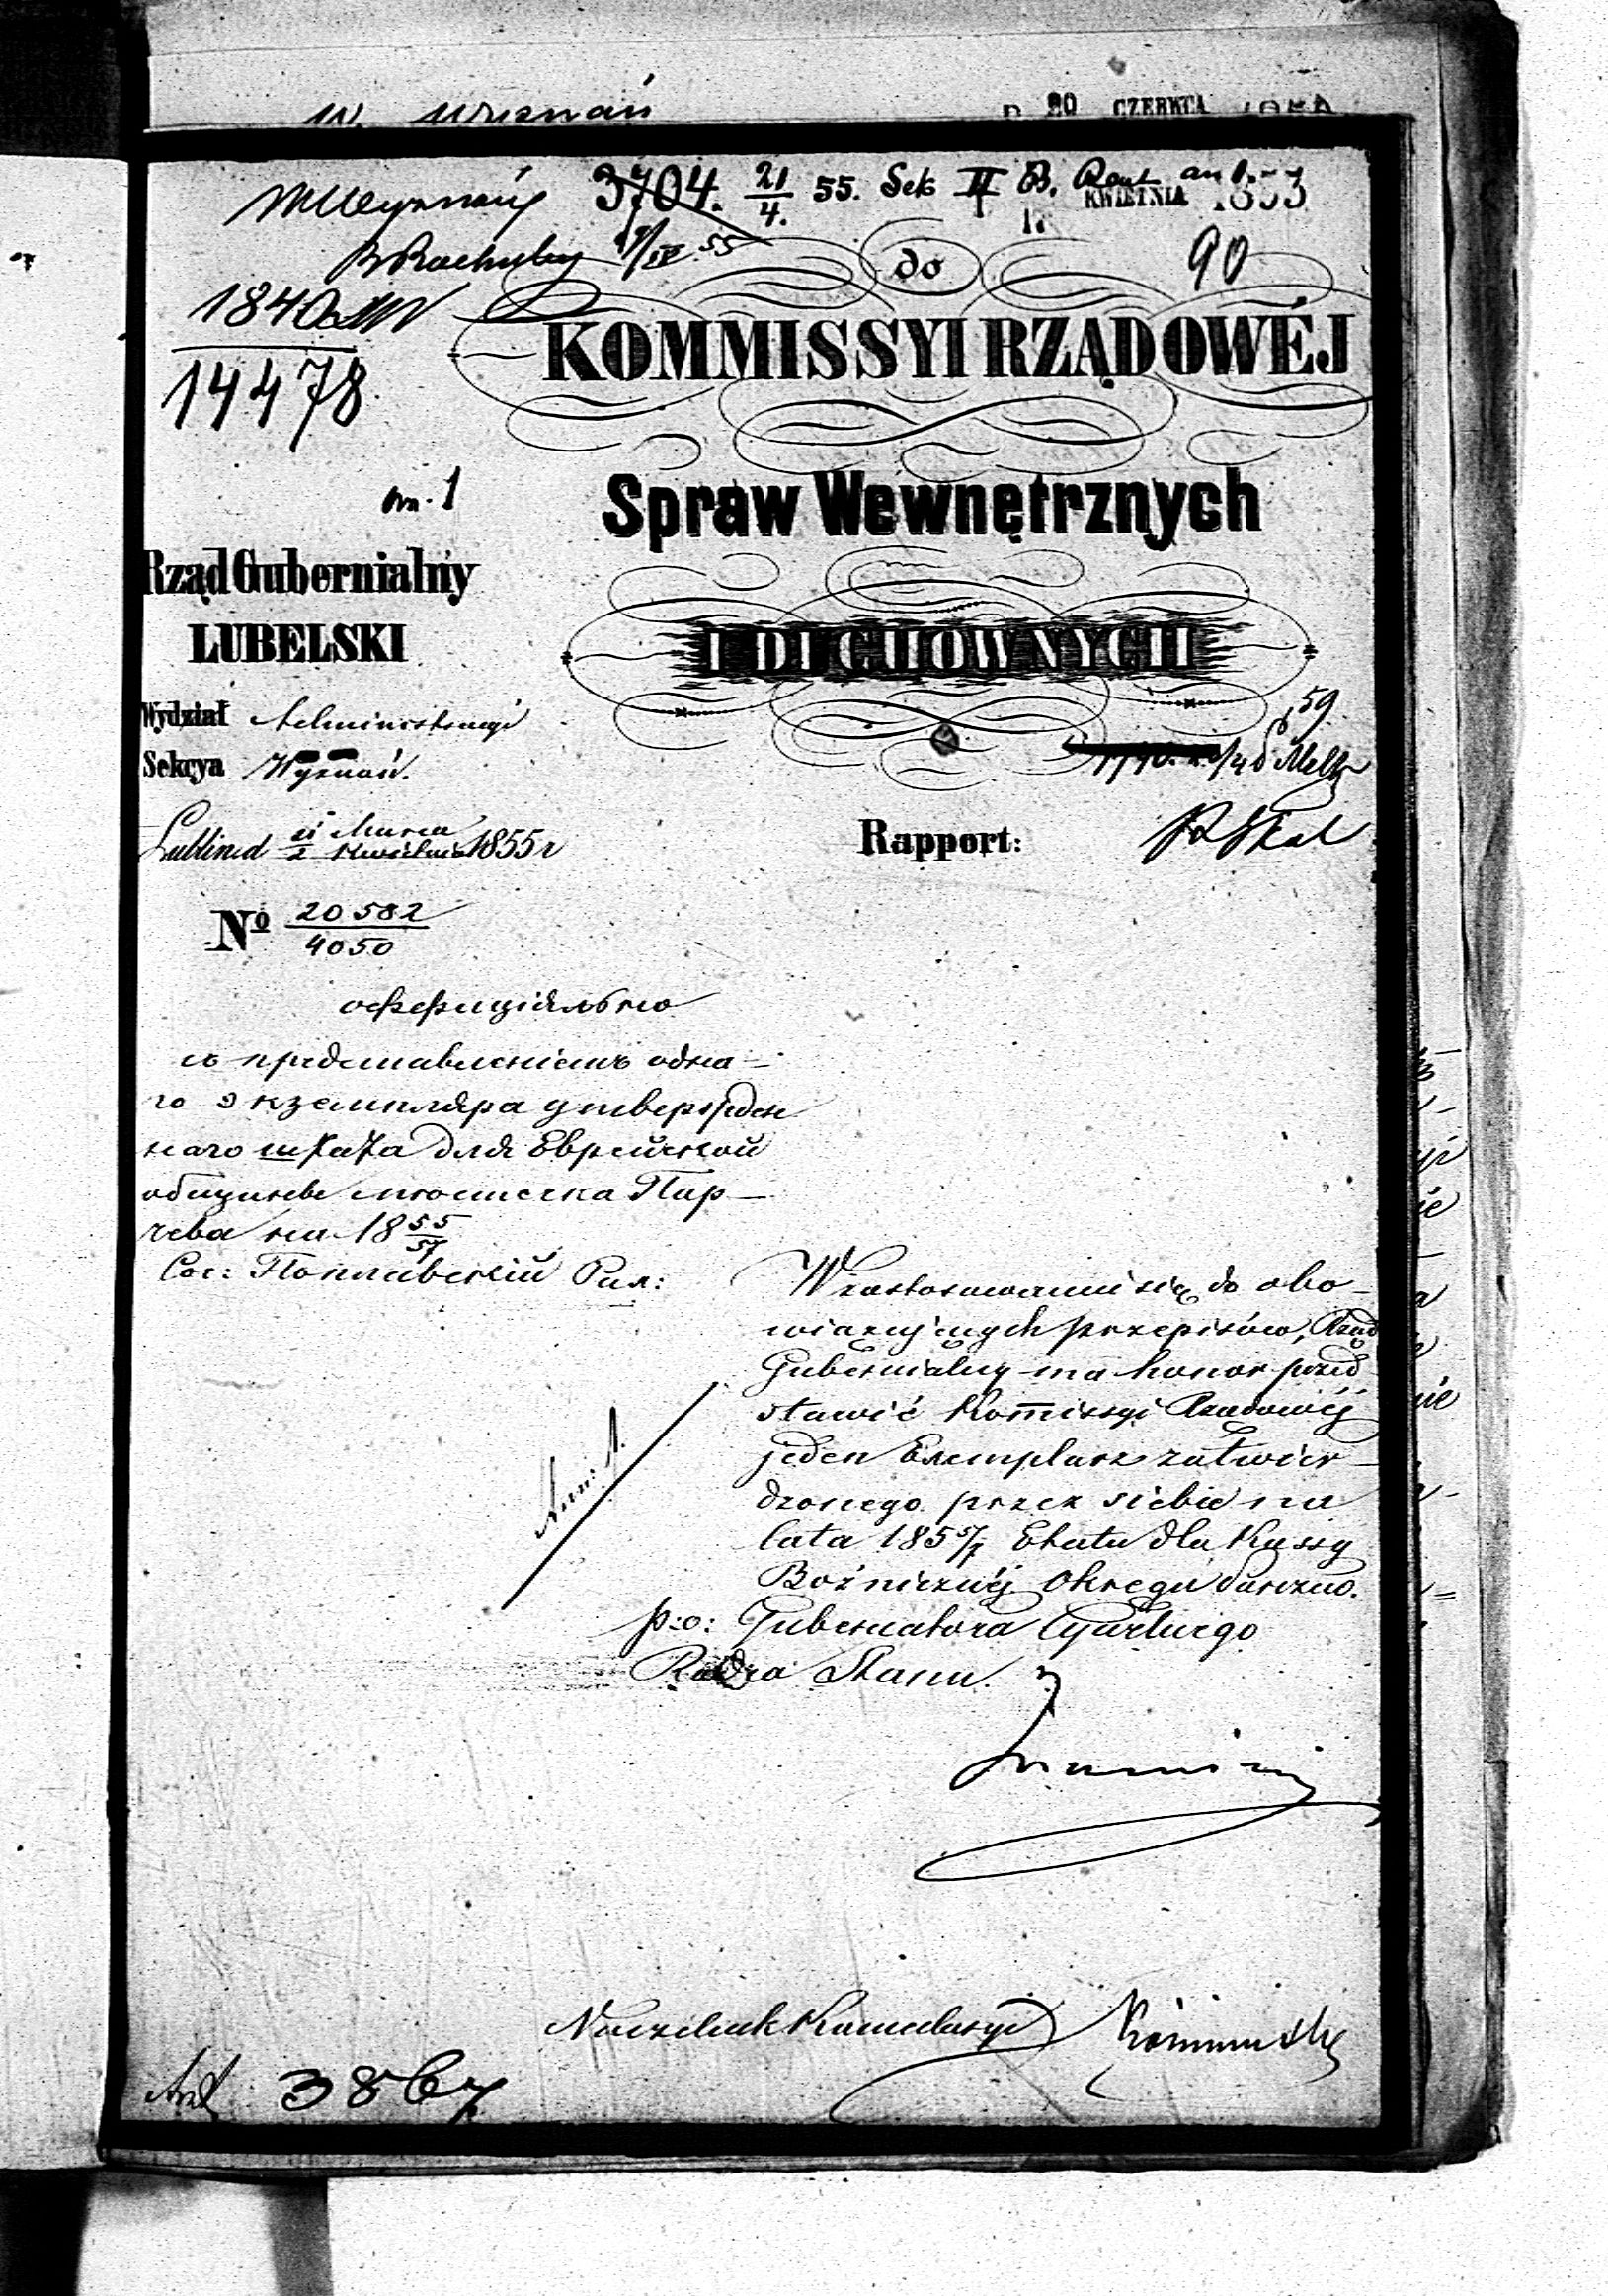 W. Wyznań
20 CZERWCA
W Wyznań 3704. 21/4. 55. Sek II B.
KWIETNIA 1855
do
90
1840
14478
KOMMISSYI RZĄDOWÉJ
an. 1
Spraw Wewnętrznych
Rząd Gubernialny
LUBELSKI
I DUCHOWNYCH
Wydział Administracyi
Sekcya Wyznań.
59
Lublin d 21 Marca/2 Kwietnia 1855 r
Rapport:
No 20582/4050
оффиціяльно
съ представленіемъ одна-
го экземпляра утвержден
наго штата для Еврейской
общины мѣстечка Пар-
чева на 18 55/57
Сос: Поплавскій Рил:
W zastosowaniu się do obo-
wiązujących przepisów, Rząd
Gubernialny ma honor przed
stawić Kommissyi Rządowéj
jeden Exemplarz zatwier-
dzonego przez siebie na
lata 185 5/7 Etatu dla Kassy
Bożniczéj Okręgu Parczew.
Ann: 1.
p:o: Gubernatora Cywilnego
Radca Stanu.
Naczelnik Kancelaryi
3867